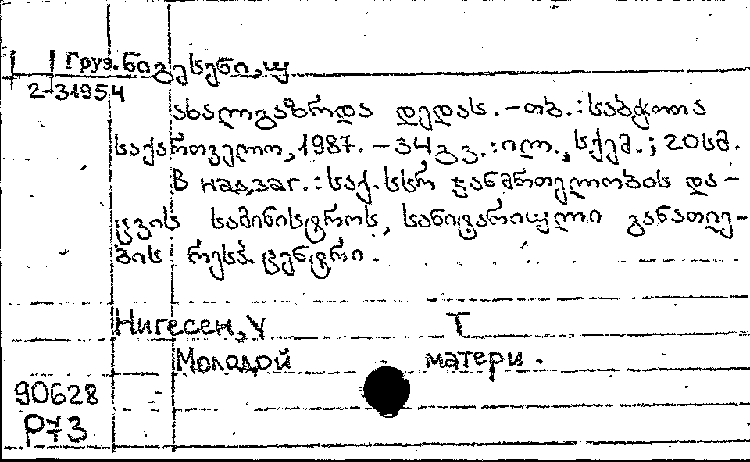 Груз. ნიგესენი, უ
2-31954
ახალგაზრდა დედას. - თბ.: საბჭოთა
საქართველო, 1987. - 34 გვ.: ილ., სქემ.; 20 სმ.
В надзаг.: საქ. სსრ ჯანმრთელობის და-
ცვის სამინისტროს, სანიტარიული განათლე-
ბის რესპ. ცენტრი.
Нигесен, У Т
Молодой матери.
90628
Р73